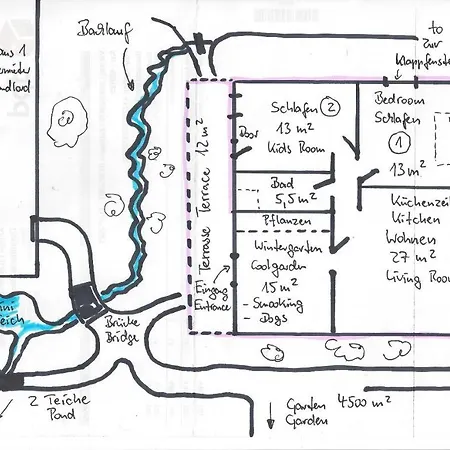 Bachlauf
to
zur
Klappfenster
aus 1
Schlafen 2
13 m²
Kids Room
Bedroom
Schlafen
1
13 m²
Door
Terrasse Terrace 12 m²
Bad
5,5 m²
Pflanzen
Wintergarten
Coolgarden
15 m²
- Smooking
- Dogs
Küchenzeil
Kitchen
Wohnen
27 m²
Living Room
Eingang
Entrance
eich
Brücke
Bridge
2 Teiche
Pond
Garten 4500 m²
Garden